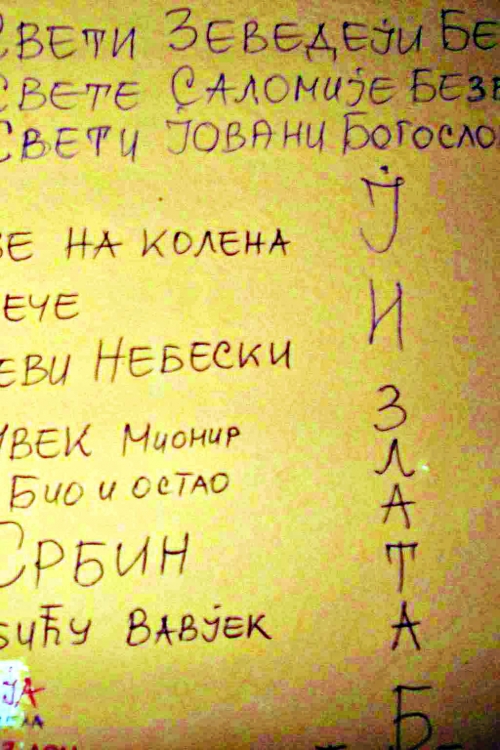 СВЕТИ ЗЕВЕДЕЈИ БЕ
СВЕТЕ САЛОМИЈЕ БЕЗ
СВЕТИ ЈОВАНИ БОГОСЛО
НА КОЛЕНА
ЕЧЕ
ЕВИ НЕБЕСКИ
УВЕК МИОНИР
БИО И ОСТАО
СРБИН
БИЋУ ВАВЈЕК
ЈА
Ј
И
З
Л
А
Т
А
Б